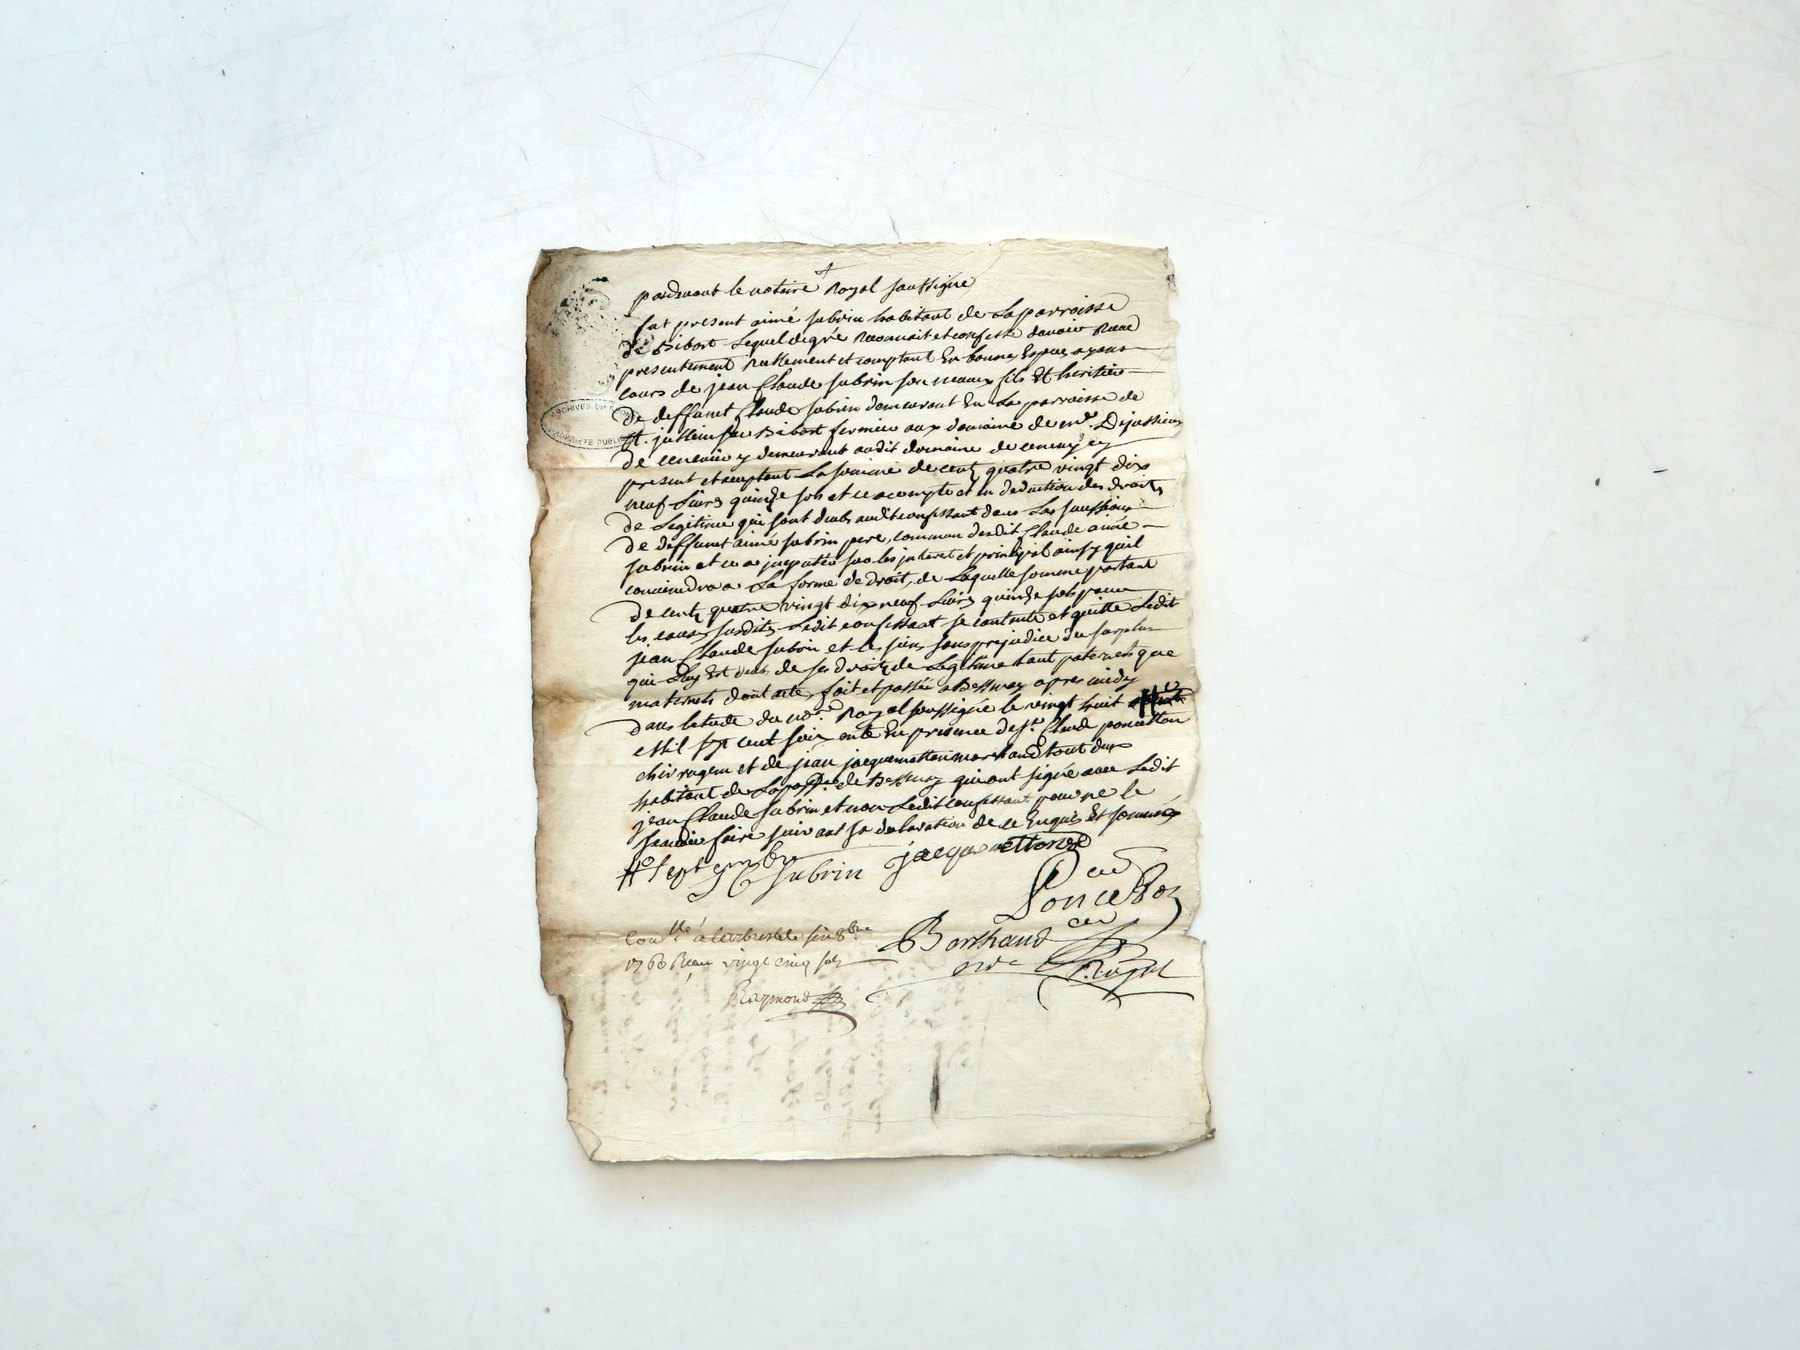 pardevant le notaire Royal soussigné
fut present aimé subrin habitant de La parroisse
de Bibost Lequel de gré Reconnait et confesse davoir Receu
presentement Reellement et comptant En bonnes Especes ayant
cours de jean Claude subrin son neveux fils Et heritier
de deffunt Claude subrin demeurant En La parroisse de
St. jullien sur Bibost fermier aux domaine de mr. Dejussieu
de y demeurant audit domaine de
present et acceptant La somme de cent quatre vingt dix
neuf Livres quinze sols et ce acompte et en deduction des droits
de Legitime qui sont deubs audit confessant dans Les successions
de deffunt aimé subrin pere, commun desdit Claude aimé
subrin et ce a jmputer sur les jnterest et principal ainsy quil
conviendra a La forme de droit, de Laquelle somme portant
de cent quatre vingt dix neuf Livres quinze sols pour
les causes susdites Ledit confessant se contente et quitte Ledit
jean Claude subrin et les siens sans prejudice du surplus
qui Luy Est deub de ses droits de Legitime tant paternels que
maternels dont acte, fait et passé a Bessenay apres midy
dans letude du no.re Royal soussigné le vingt huit #
mil sept cent soixante En presence de sr. Claude poncetton
chirurgien et de jean jacquemetton marchand tout deux
habitant de La parr.sse de Bessenay qui ont signé avec Ledit
jean Claude subrin et non Ledit confessant pour ne le
scavoir faire suivant sa declaration de ce Enquis Et sommé
# septembre
J C subrin jacquemetton
Poncetton
Borthaud
no.re Royal
Con.llé à Larbresle six 8bre
1760 Receu vingt cinq sols
Raymond
ARCHIVES
PROPRIETE PUBLIQUE